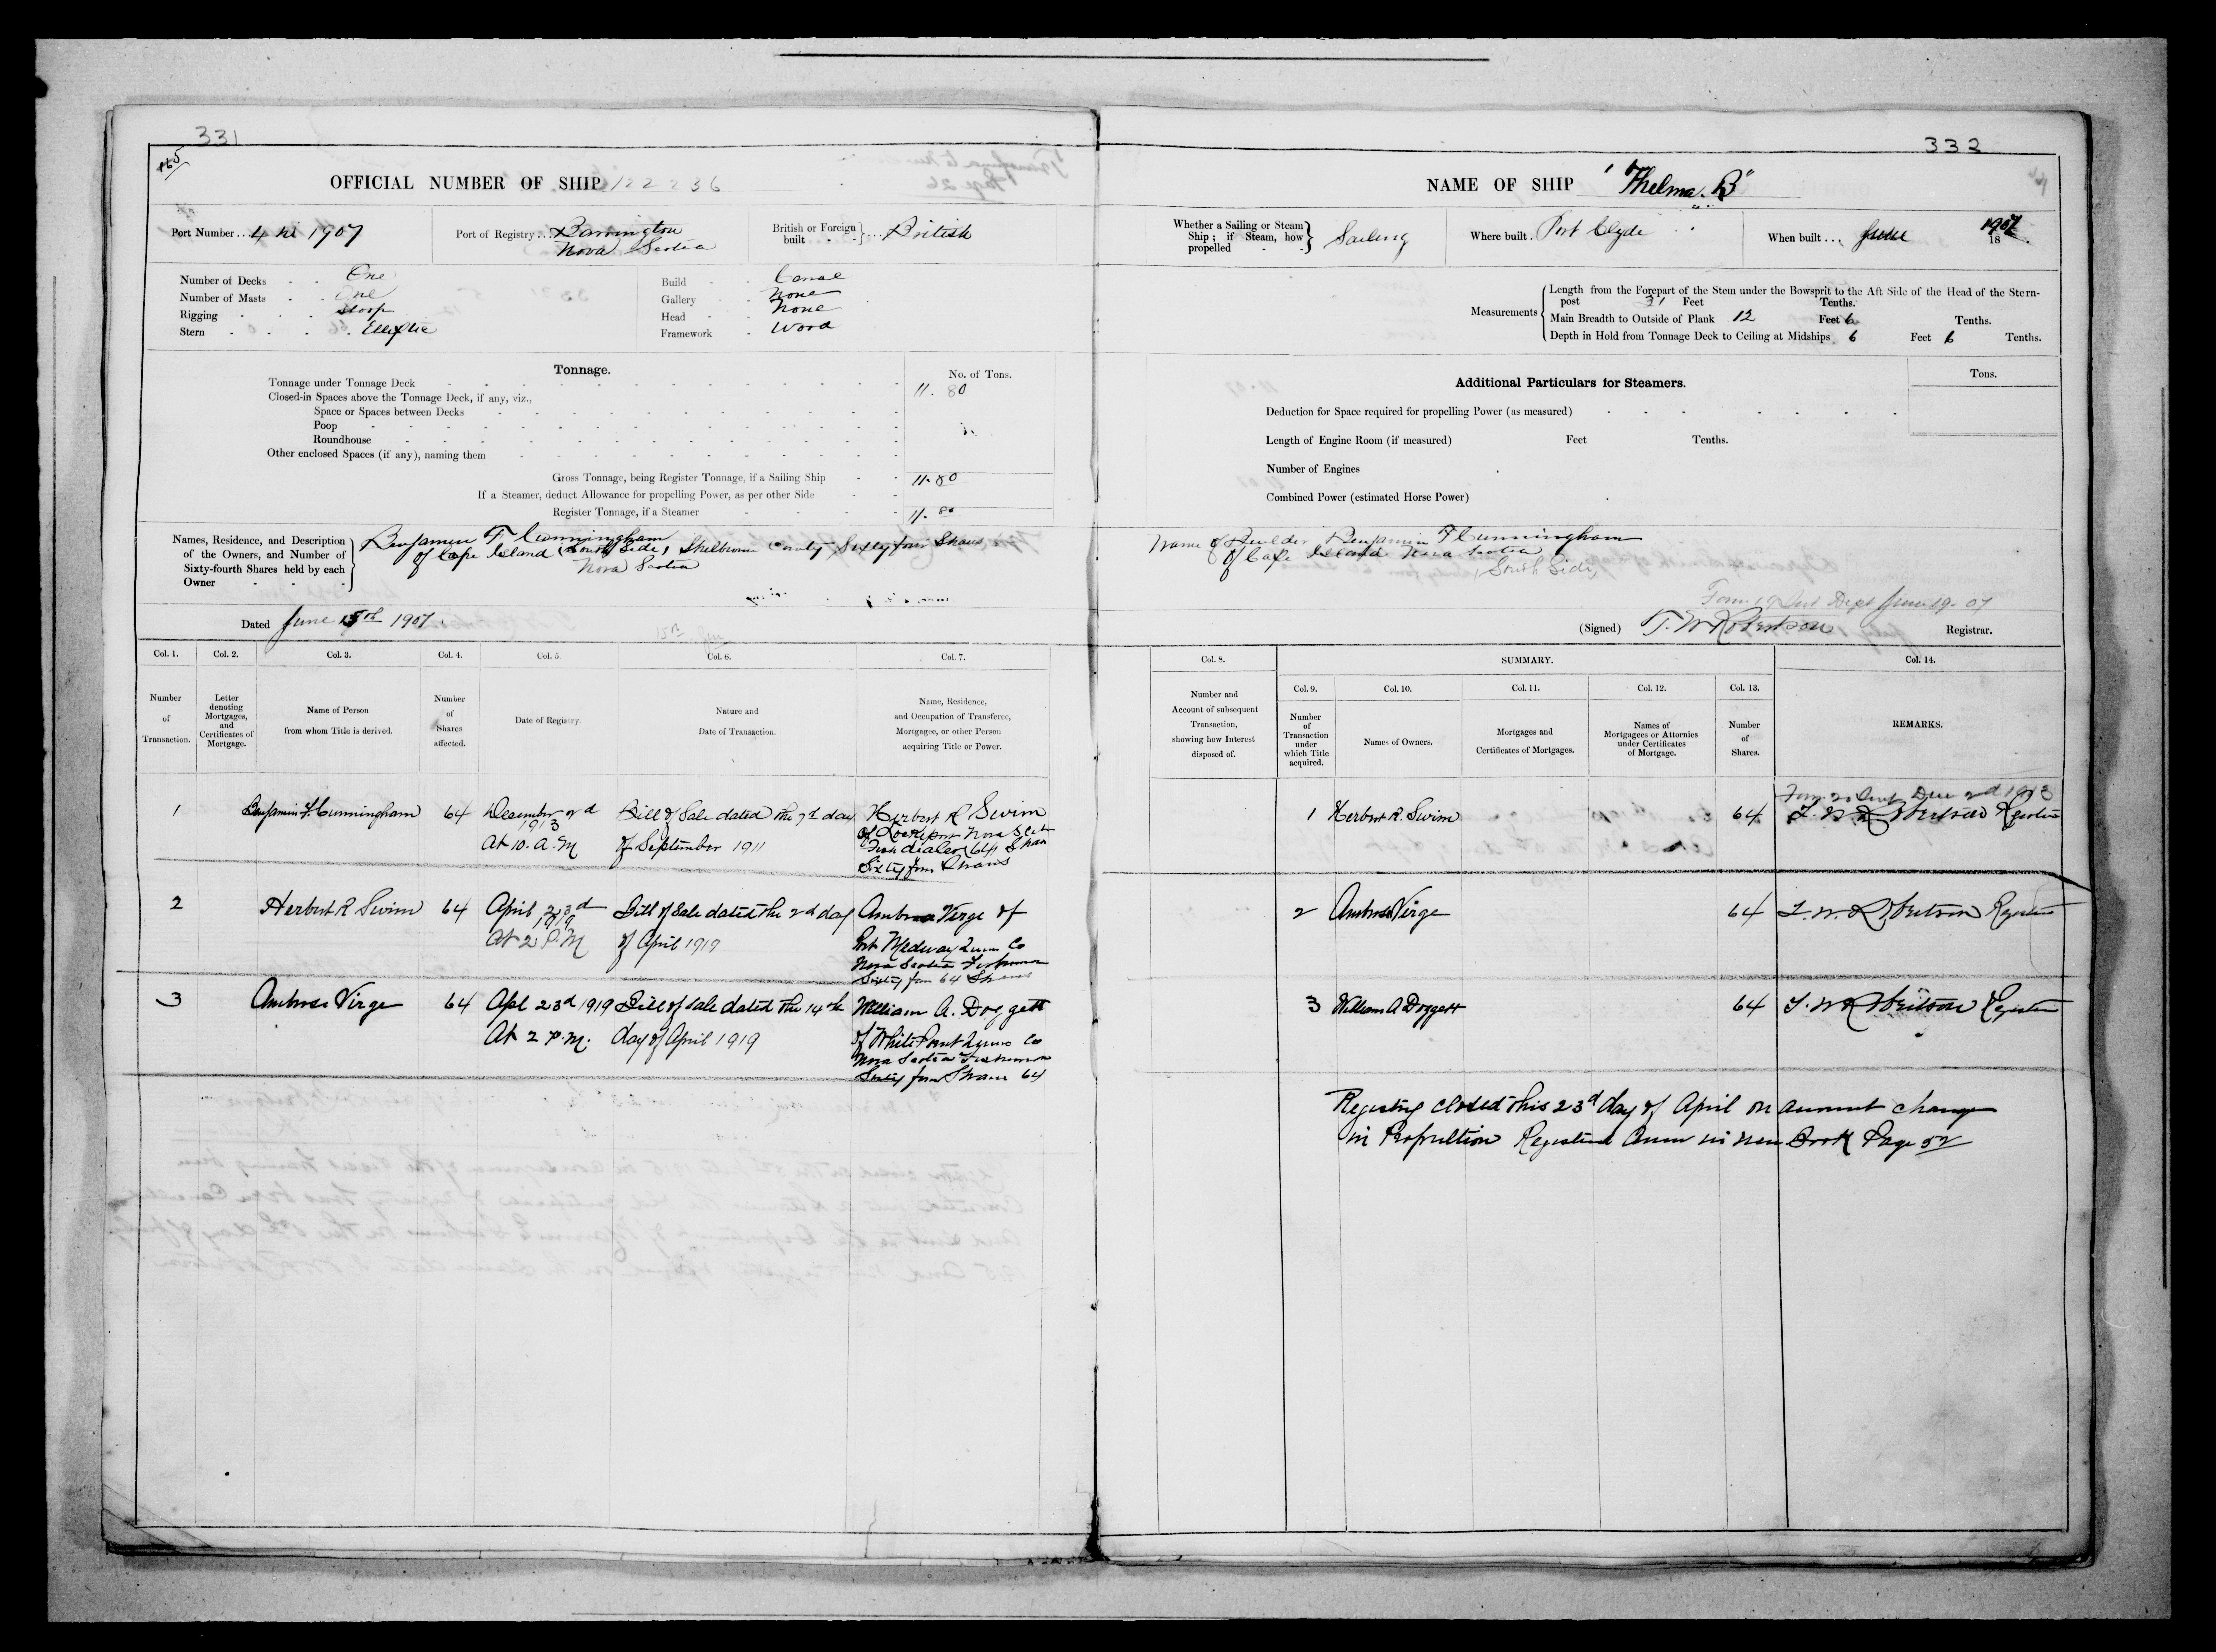 331
OFFICIAL NUMBER OF SHIP 122236
Port Number... 4 in 1907
Port of Registry... Barrington
Nova Scotia
British or Foreign built } ... British
Number of Decks One
Number of Masts One
Rigging Sloop
Stern Elliptic
Build Canal
Gallery None
Head None
Framework Wood
Tonnage.
No. of Tons.
Tonnage under Tonnage Deck 11.80
Closed-in Spaces above the Tonnage Deck, if any, viz.,
Space or Spaces between Decks
Poop
Roundhouse
Other enclosed Spaces (if any), naming them
Gross Tonnage, being Register Tonnage, if a Sailing Ship 11.80
If a Steamer, deduct Allowance for propelling Power, as per other Side
Register Tonnage, if a Steamer 11.80
Names, Residence, and Description of the Owners, and Number of Sixty-fourth Shares held by each Owner
Benjamin F Cunningham
of Cape Island (South Side, Shelburne County Sixty four Shares
Nova Scotia
Dated June 15th 1907.
Col. 1. Col. 2. Col. 3. Col. 4. Col. 5. Col. 6. Col. 7.
Number of Transaction.
Letter denoting Mortgages, and Certificates of Mortgage.
Name of Person from whom Title is derived.
Number of Shares affected.
Date of Registry.
Nature and Date of Transaction.
Name, Residence, and Occupation of Transferee, Mortgagee, or other Person acquiring Title or Power.
1 Benjamin F. Cunningham 64 December 2nd 1913 At 10. A.M
Bill of Sale dated the 7th day
of September 1911
Herbert R Swim
of Lockeport Nova Scotia
Fish dealer 64 Shares
Sixty four Shares
2 Herbert R Swim 64 April 23d 1919 At 2 P.M
Bill of Sale dated the 2nd day
of April 1919
Ambrose Virge of
Port Medway Queens Co
Nova Scotia Fisherman
Sixty four 64 Shares
3 Ambrose Virge 64 Apl 23d 1919 At 2 P.M.
Bill of Sale dated the 14th
day of April 1919
William A. Doggett
of White Point Queens Co
Nova Scotia Fisherman
Sixty four Shares 64
332
NAME OF SHIP "Thelma. B"
Whether a Sailing or Steam Ship; if Steam, how propelled } Sailing
Where built. Port Clyde
When built... June 1907
18
Measurements
Length from the Forepart of the Stem under the Bowsprit to the Aft Side of the Head of the Stern-
post 31 Feet Tenths.
Main Breadth to Outside of Plank 12 Feet 6 Tenths.
Depth in Hold from Tonnage Deck to Ceiling at Midships 6 Feet 6 Tenths.
Additional Particulars for Steamers.
Tons.
Deduction for Space required for propelling Power (as measured)
Length of Engine Room (if measured) Feet Tenths.
Number of Engines
Combined Power (estimated Horse Power)
Name of Builder Benjamin F Cunningham
of Cape Island Nova Scotia
South Side,
Form 19 Sent Dept June 19-07
(Signed) T. W Robertson Registrar.
Col. 8. SUMMARY. Col. 14.
Col. 9. Col. 10. Col. 11. Col. 12. Col. 13.
Number and Account of subsequent Transaction, showing how Interest disposed of.
Number of Transaction under which Title acquired.
Names of Owners.
Mortgages and Certificates of Mortgages.
Names of Mortgagees or Attornies under Certificates of Mortgage.
Number of Shares.
REMARKS.
Form 20 Sent Dec 2nd 1913
1 Herbert R. Swim 64 T. W. Robertson Registrar
2 Ambrose Virge 64 T. W. Robertson Registrar
3 William A Doggett 64 T. W Robertson Registrar
Registry closed this 23d day of April on account change
in Propultion Registered Anew in new Book Page 52